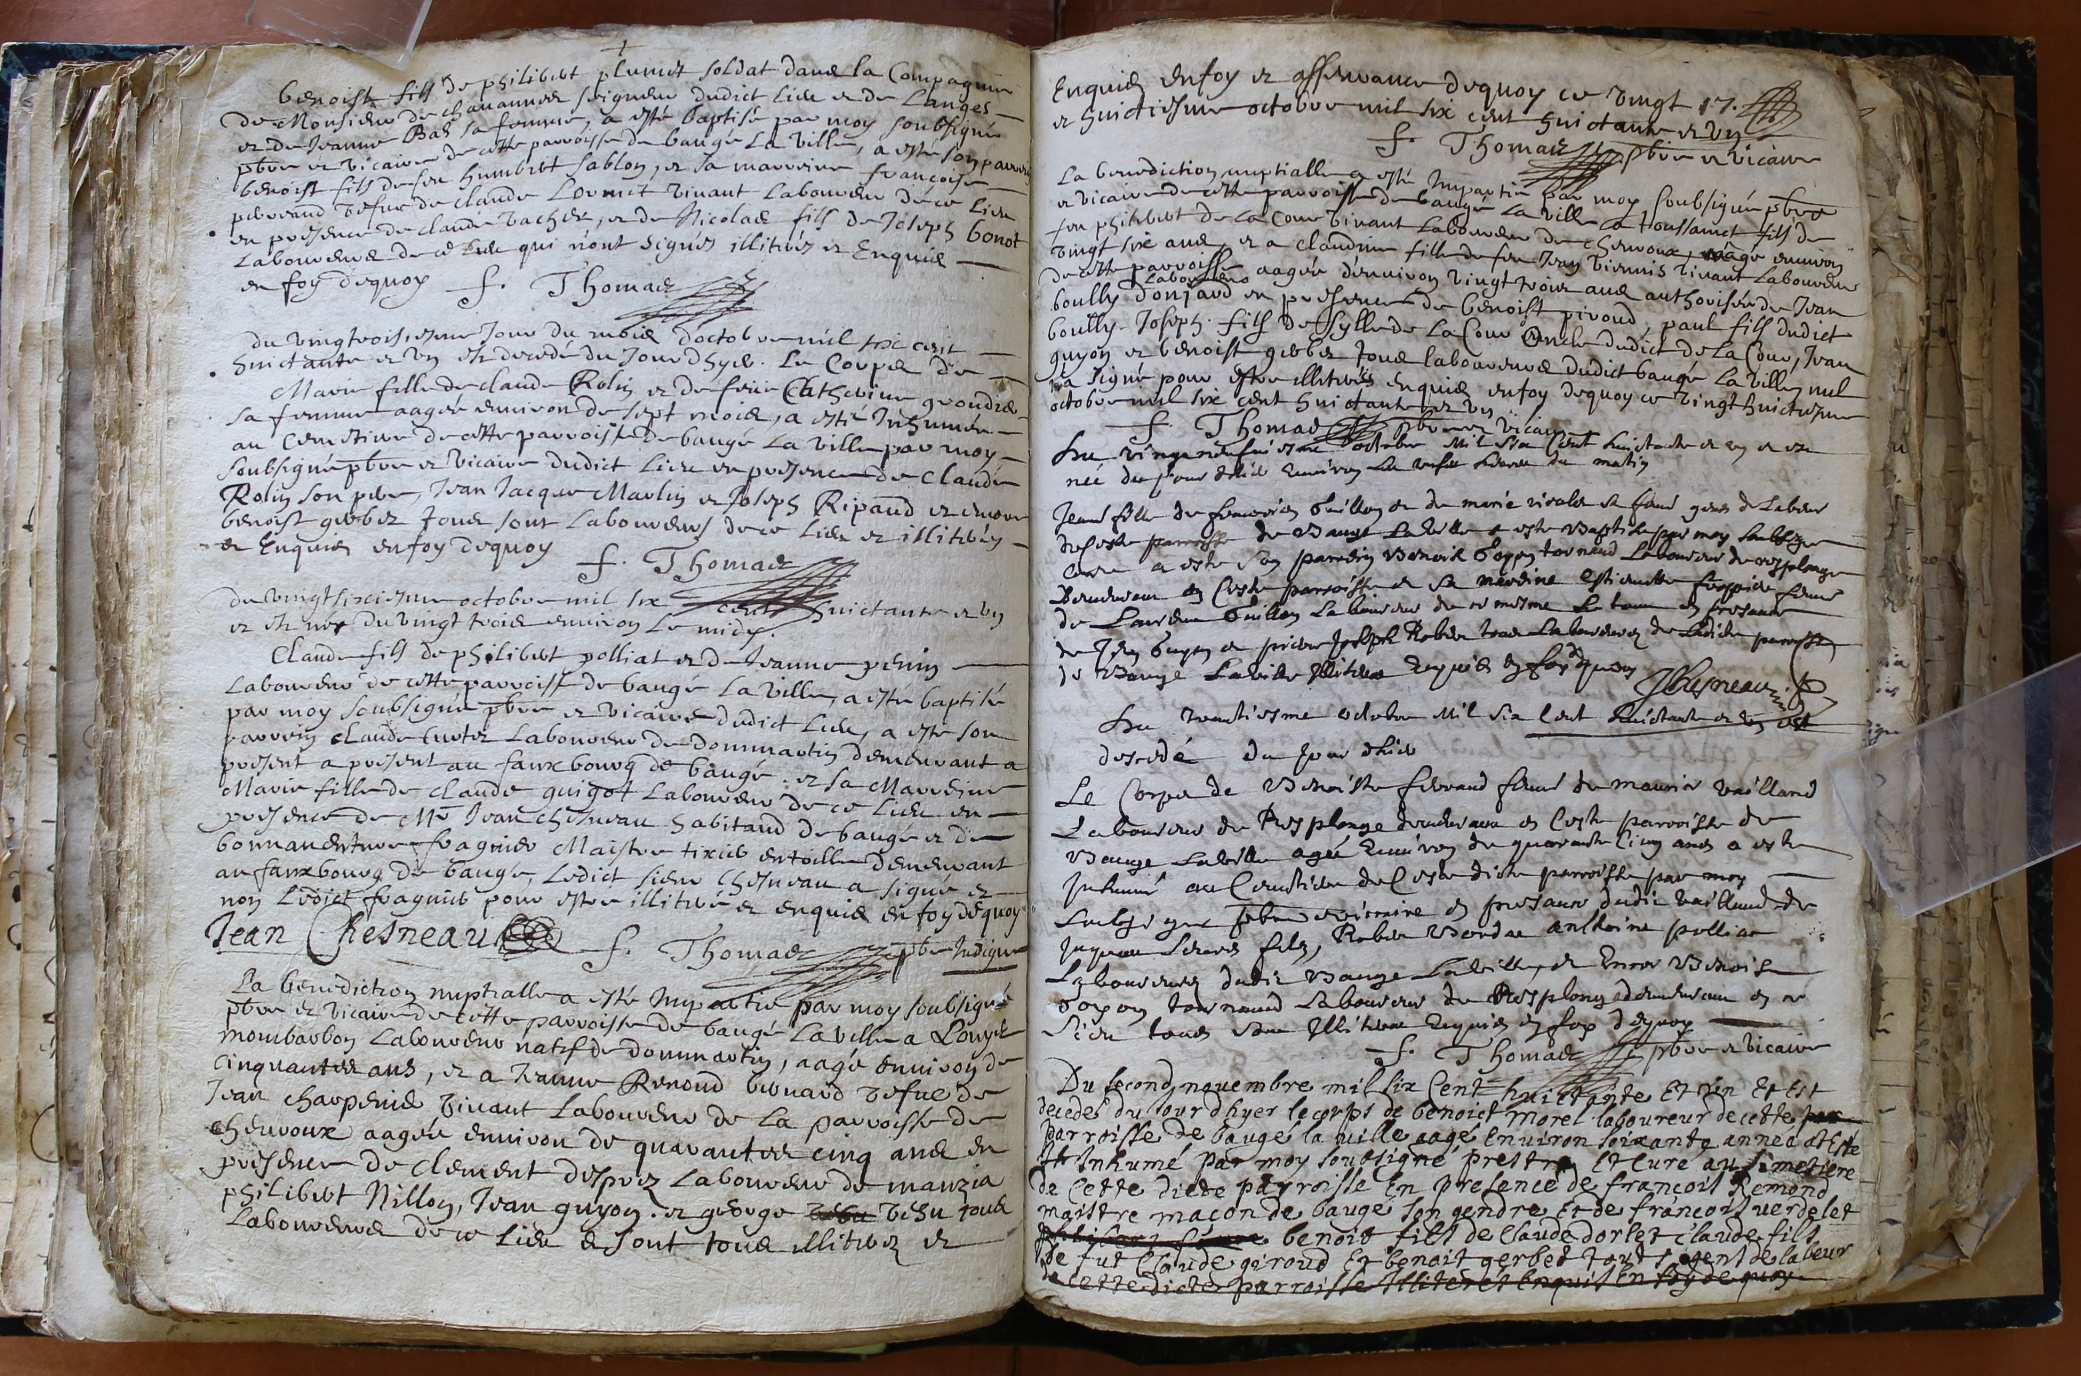 benoist fils de philibert plumet soldat dans la Compagnie
de Monsieur de chavannes seigneur dudict lieu et de Langes
et de Jeanne Bas sa femme, a esté baptisé par moy soubsigné
pbre et vicaire de cette parroisse de baugé La ville, a esté son parrein
benoist fils de feu humbert sablon, et sa marreine françoise
perraud vefue de claude Lornet vivant Laboureur de ce Lieu
en presence de claude vacher, et de Nicolas fils de Joseph bonot
Laboureurs de ce Lieu qui n'ont signés illiterés et Enquis
en foy dequoy f. Thomas
du vingtroisiesme Jour du mois d'octobre mil six cent
huictante et un est decedé du Jour d'hyer. Le Corps de
Marie fille de claude Rolin et de feue Catherine
sa femme aagée environ de sept mois, a esté Inhumée
au Cemetiere de cette parroisse de baugé La ville par moy
soubsigné pbre et vicaire dudict Lieu en presence de Claude
Rolin son pere, Jean Jacques Marlin et Joseph Ripaud et encore
benoist gerbet tous sont Laboureurs de ce Lieu et illiterés
et Enquis en foy dequoy f. Thomas
du vingt sixiesme octobre mil six cent huictante et un
et est nez du vingt trois environ Le midy.
Claude fils de philibert polliat et de Jeanne penin
Laboureur de cette parroisse de baugé La ville, a esté baptisé
par moy soubsigné pbre et vicaire dudict Lieu, a esté son
parrein claude Laboureur de dommartin demeurant a
present a present au fauxbourg de baugé. et sa Marreine
Marie fille de claude guigot Laboureur de ce Lieu en
presence de Me Jean chesneau habitand de baugé et de
bonnaventure fragnier Maistre tixier en toille demeurant
au fauxbourg de baugé, Ledict sieur chesneau a signé et
non Ledict fragnier pour estre illiteré et enquis en foy de quoy
Jean Chesneau f. Thomas pbre Indigne
La benediction nuptialle a esté Impartie par moy soubsigné
pbre et vicaire de cette parroisse de baugé La ville a Louys
mombarbon Laboureur natif de dommartin, aagé environ de
cinquantes ans, et a Jeanne Renoud bernard vefue de
Jean charpenie vivant Laboureur de La parroisse de
cheuroux aagée environ de quarantes cinq ans en
presence de Clement desprez Laboureur de manzia
philibert Nillon, Jean guyon. et george vehu tous
Laboureurs de ce Lieu et sont tous illiterez et
Enquis en foy et asseurance dequoy ce vingt 17.
et huictiesme octobre mil six cent huictante et un
f. Thomas pbre et vicaire
La benediction nuptialle a esté Impartie par moy soubsigné pbre
et vicaire de cette parroisse de baugé La ville a Toussainct fils de
feu philibert de La Cour vivant Laboureur de cheuroux, aagé environ
vingt six ans, et a claudine fille de feu Jean viennis vivant Laboureur
de cette parroisse aagée d'environ vingt trois ans authorisée de Jean
boully Laboureur d'onjard en presence de benoist piroud, paul fils dudict
boully. Joseph fils de sylle de La Cour oncle dudict de La Cour, Jean
guyon et benoist gerbet tous laboureurs dudict baugé La ville nul
n'a signé pour estre illiterés enquis en foy dequoy ce vingt huictiesme
octobre mil six cent huictante et un
f. Thomas pbre et vicaire
Du vingt neufuiesme octobre Mil six Cent huictante et un et est
née du jour dhier environ Les heures du matin
Jeanne fille de Guillon et de marie sa feme gens de Labeur
de ceste parroisse de Bauge La ville a este Baptisé par moy soubsigné
Curé a este son parrein Benoist Goyon tornand Laboureur de Resplonge
Demeurant en Ceste parroisse et sa mareine Estiennette feme
de Laurens Guillon Laboureur de ce mesme Lieu en presence
de Jean Guyon et Joseph Robin tous Laboureurs de Ladicte parroisse
de Bauge Laville Illiteres Enquis en foy de quoy
JChesneau
Du trentiesme octobre Mil six Cent huictante et un est
decedé du jour dhier
Le Corps de Benoiste feme de maurice vailland
Laboureur de Resplonge demeurant en Ceste parroisse de
Bauge Laville agée Environ de quarante Cinq ans a este
Inhumé au Cemetiere de Ceste dicte parroisse par moy
soubsigné pbre vicaire en presance dudit vailland de
Jaques son filz, Robin antoine polliac
Laboureurs dudit Bauge Laville, et Encor Benoist
Goyon tournand Laboureur de Resplonge demeurant en ce
Lieu tous Illiteres Enquis en foy dequoy
f. Thomas pbre et vicaire
Du second nouembre mil six Cent huictante et un Et Est
decedes du jour d'hyer le corps de benoict Morel laboureur de cette par
parroisse de baugé la uille aagé enuiron soixante années et Este
Inhumé par moy soubsigné prestre et Curé au Simetiere
de Cette dicte parroisse En presence de françois Remond
maistre macon de baugé son gendre et de françois uerdelet
benoist fils de Claude dorlet Claude fils
de fut Claude giroud Et benoit gerbet touts gens de labeur
de cette dicte parroisse Illiteres Enquis En foy de quoy